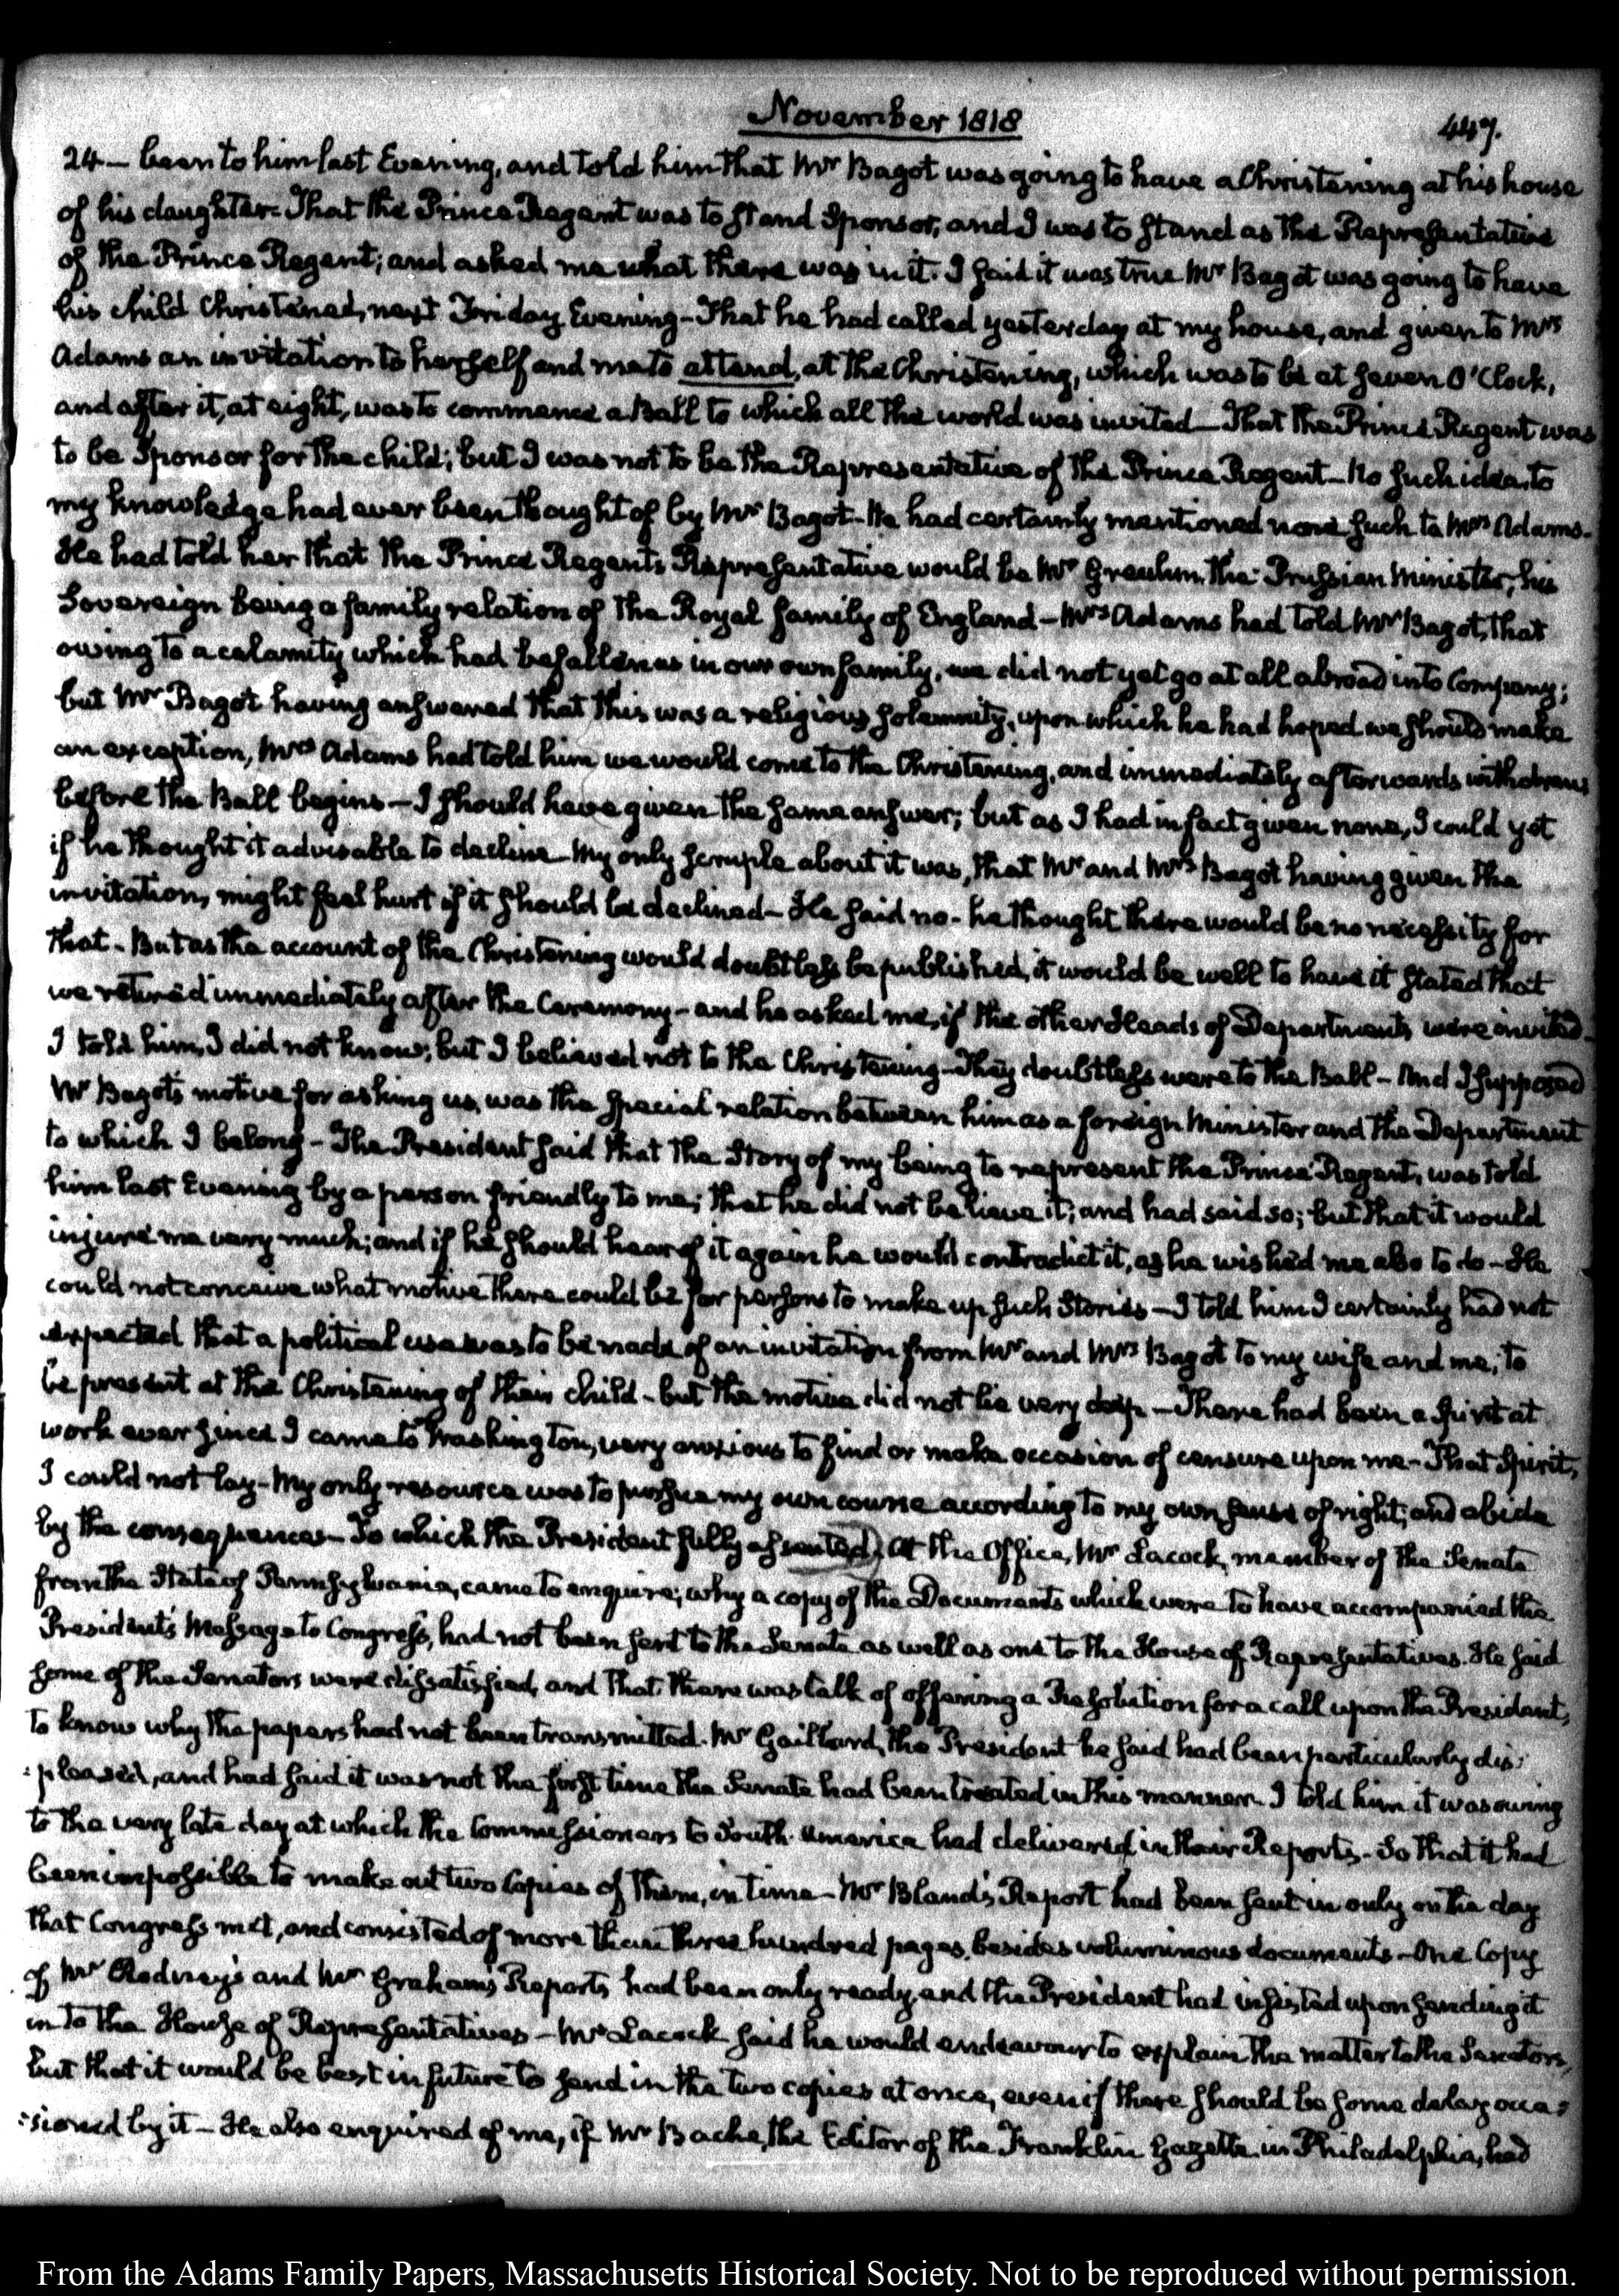 November 1818
447.
24 — been to him last Evening, and told him that Mr Bagot was going to have a Christening at his house
of his daughter - That the Prince Regent was to stand Sponsor, and I was to stand as the Representative
of the Prince Regent; and asked me what there was in it. I said it was true Mr Bagot was going to have
his child Christened, next Friday Evening - That he had called yesterday at my house, and given to Mrs
Adams an invitation to herself and me to attend, at the Christening, which was to be at seven O'Clock,
and after it, at eight, was to commence a Ball to which all the world was invited — That the Prince Regent was
to be Sponsor for the child; but I was not to be the Representative of the Prince Regent — No such idea to
my knowledge had ever been thought of by Mr Bagot - He had certainly mentioned none such to Mrs Adams.
He had told her that the Prince Regent's Representative would be Mr Greuhm, the Prussian Minister, his
Sovereign being a family relation of the Royal family of England - Mrs Adams had told Mr Bagot, that
owing to a calamity which had befallen us in our own family, we did not yet go at all abroad into Company;
but Mr Bagot having answered that this was a religious solemnity, upon which he had hoped we should make
an exception, Mrs Adams had told him we would come to the Christening, and immediately afterwards withdraw
before the Ball begins — I should have given the same answer; but as I had in fact given none, I could yet
if he thought it advisable to decline - My only scruple about it was, that Mr and Mrs Bagot having given the
invitation, might feel hurt if it should be declined - He said no - he thought there would be no necessity for
that - But as the account of the Christening would doubtless be published, it would be well to have it stated that
we retired immediately after the Ceremony - and he asked me, if the other Heads of Departments were invited -
I told him, I did not know; but I believed not to the Christening - They doubtless were to the Ball - And I supposed
Mr Bagot's motive for asking us, was the special relation between him as a foreign Minister and the Department
to which I belong - The President said that the Story of my being to represent the Prince Regent, was told
him last Evening by a person friendly to me; that he did not believe it; and had said so; but that it would
injure me very much; and if he should hear of it again he would contradict it, as he wished me also to do - He
could not conceive what motive there could be for persons to make up such Stories — I told him I certainly had not
expected that a political use was to be made of an invitation from Mr and Mrs Bagot to my wife and me, to
be present at the Christening of their child - but the motive did not lie very deep — There had been a Spirit at
work ever since I came to Washington, very anxious to find or make occasion of censure upon me - That Spirit,
I could not lay - My only resource was to pursue my own course according to my own sense of right, and abide
by the consequences - To which the President fully assented. At the Office, Mr Lacock, member of the Senate
from the State of Pennsylvania, came to enquire; why a copy of the Documents which were to have accompanied the
President's Message to Congress, had not been sent to the Senate as well as one to the House of Representatives. He said
some of the Senators were dissatisfied, and that there was talk of offering a Resolution for a call upon the President,
to know why the papers had not been transmitted. Mr Gaillard, the President he said had been particularly dis:
:pleased, and had said it was not the first time the Senate had been treated in this manner. I told him it was owing
to the very late day at which the Commissioners to South America had delivered in their Reports - So that it had
been impossible to make out two Copies of them, in time - Mr Bland's Report had been sent in only on the day
that Congress met, and consisted of more than three hundred pages, besides voluminous documents - One Copy
of Mr Rodney's and Mr Graham's Reports had been only ready, and the President had insisted upon sending it
in to the House of Representatives - Mr Lacock said he would endeavour to explain the matter to the Senators,
but that it would be best in future to send in the two copies at once, even if there should be some delay occa:
:sioned by it - He also enquired of me, if Mr Bache, the Editor of the Franklin Gazette in Philadelphia, had
From the Adams Family Papers, Massachusetts Historical Society. Not to be reproduced without permission.